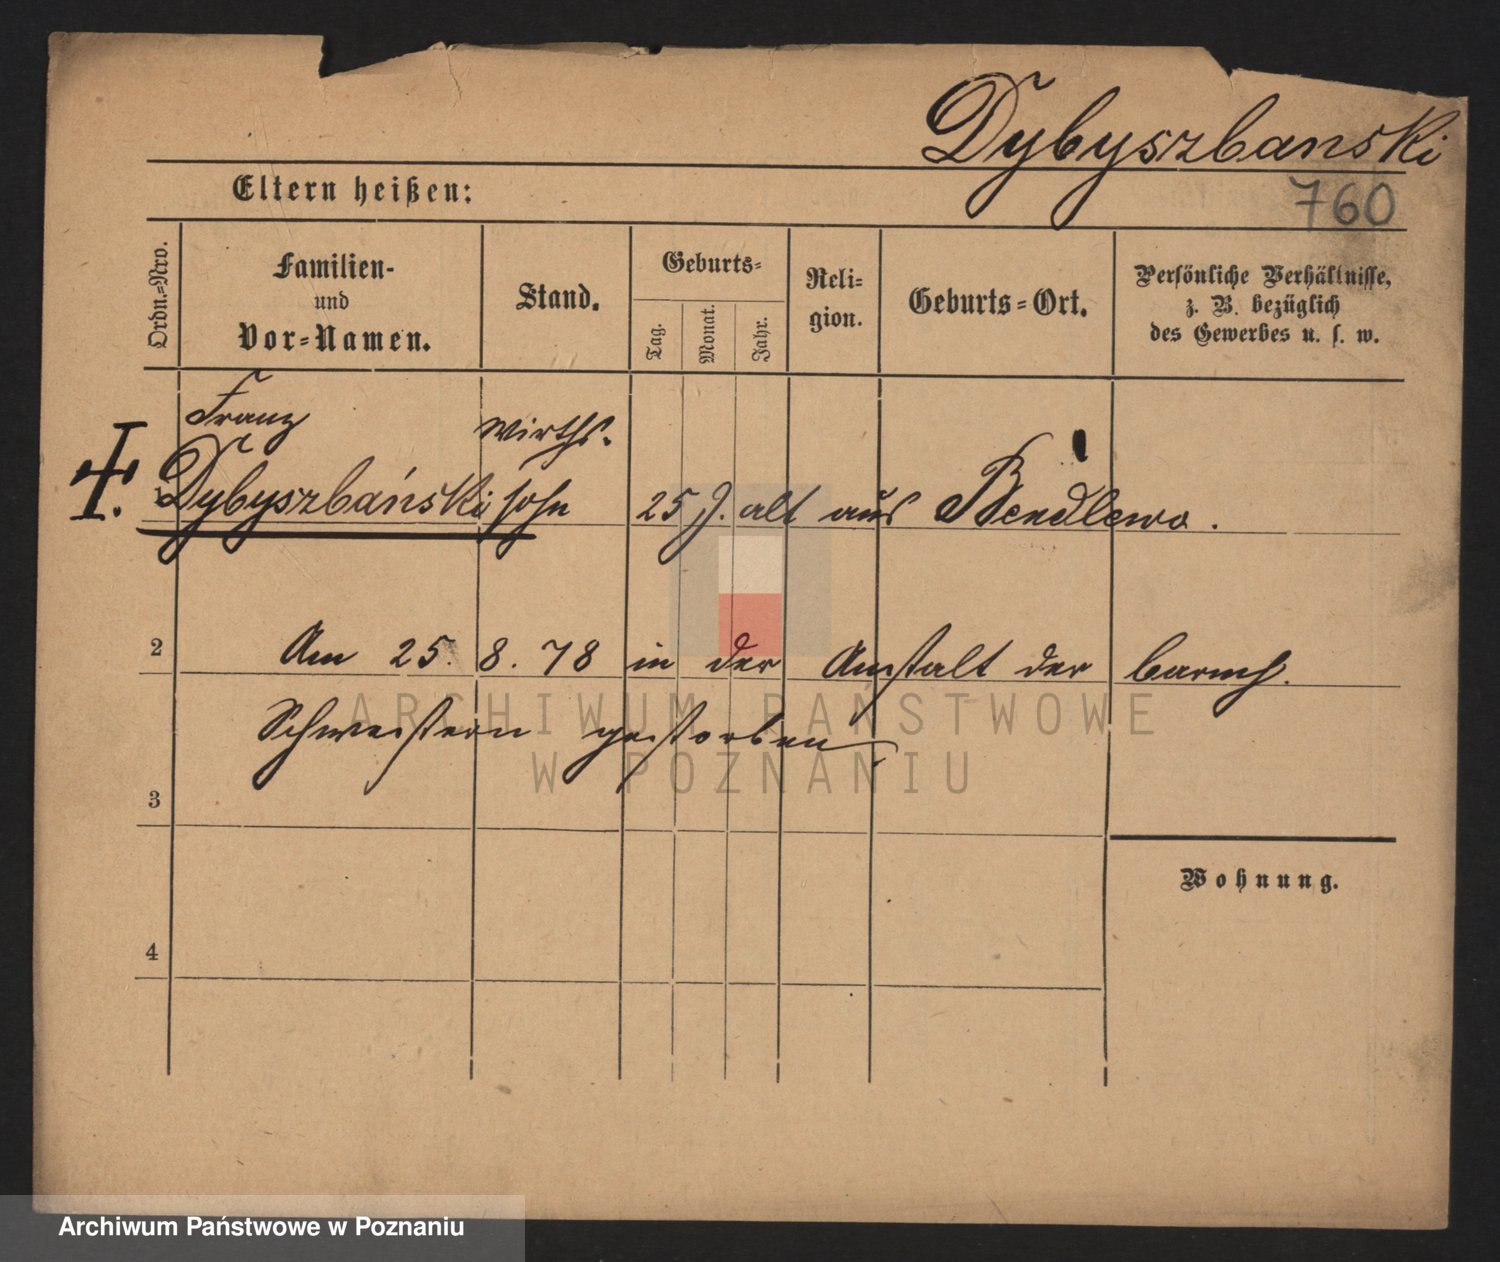 Dybyszbanski
Eltern heißen:
760
Ordn.-Nro.
Familien-
und
Vor-Namen.
Stand.
Geburts-
Tag.
Monat.
Jahr.
Reli-
gion.
Geburts-Ort.
Persönliche Verhältnisse,
z. B. bezüglich
des Gewerbes u. s. w.
Franz Wirths-
1 Dybyszbański sohn 25 J. alt aus Bendlewo.
2 Am 25. 8. 78 in der Anstalt der barmh.
Schwestern gestorben
3
Wohnung.
4
ARCHIWUM PAŃSTWOWE
W POZNANIU
Archiwum Państwowe w Poznaniu